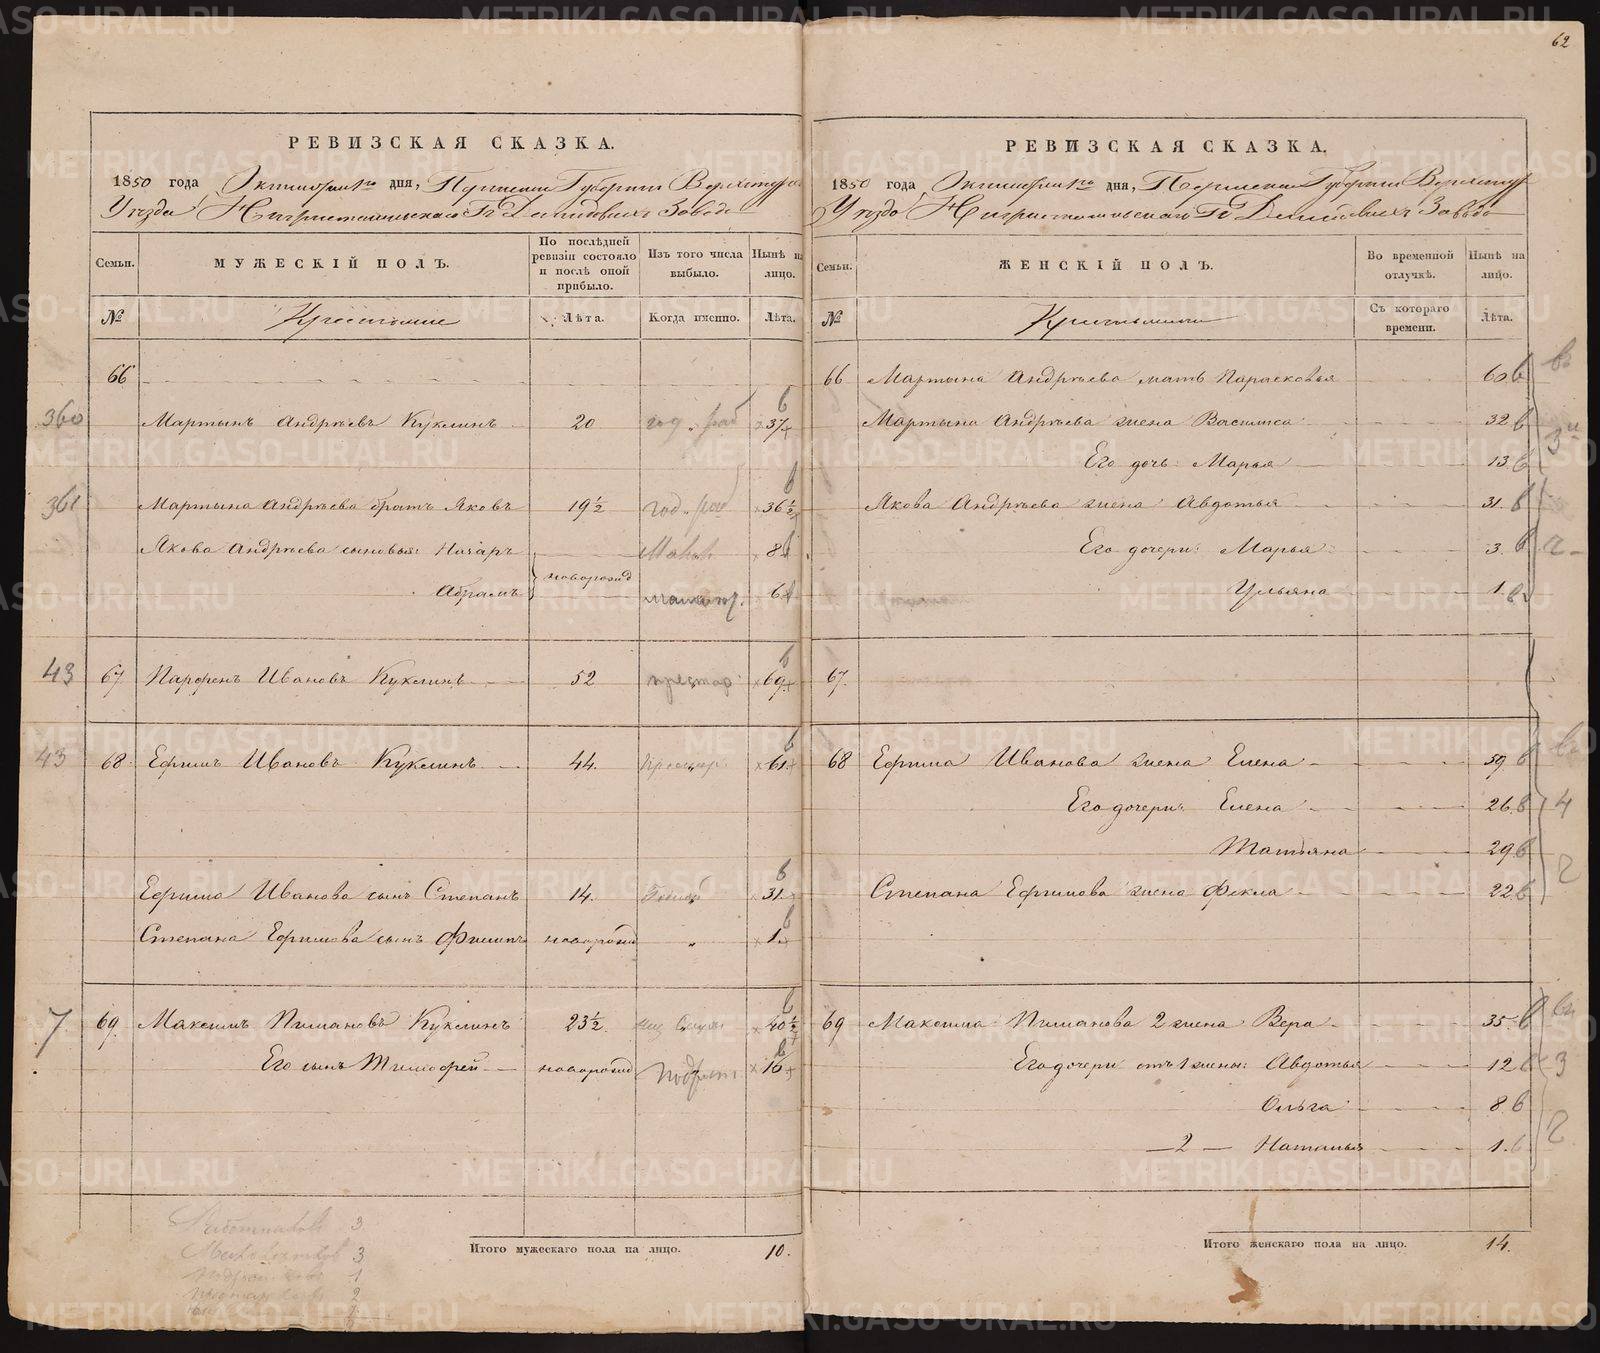 62
РЕВИЗСКАЯ СКАЗКА.
1850 года Октября дня, Пермской Губернии Верхотурс
Уезда Нижнетагильскаго Гг Демидовыхъ Завода
Семьи.
МУЖЕСКІЙ ПОЛЪ.
По послѣдней ревизіи состояло и послѣ оной прибыло.
Изъ того числа выбыло.
Нынѣ на лицо.
№
Крестьяне
Лѣта.
Когда именно.
Лѣта.
66
360 Мартынъ Андрѣевъ Кукминъ 20 год. раб 37
361 Мартына Андрѣева братъ Яковъ 19½ год. раб 36½
Якова Андрѣева сыновья: Назаръ 8
новорожд
Абрамъ 6
43 67 Парфенъ Ивановъ Кукминъ 52 престар 69
43 68 Ефимъ Ивановъ Кукминъ 44. престар 61
Ефима Иванова сынъ Степанъ 14. 31
Степана Ефимова сынъ Филипъ новорожд „ 1
7 69 Максимъ Пимановъ Кукминъ 23½ 40½
Его сынъ Тимофей новорожд подрост 16
Работниковъ 3
3
1
2
Итого мужескаго пола на лицо. 10.
РЕВИЗСКАЯ СКАЗКА.
1850 года Октября дня, Пермской Губернии Верхотур
Уезда Нижнетагильскаго Гг Демидовыхъ Завода
Семьи.
ЖЕНСКІЙ ПОЛЪ.
Во временной отлучкѣ.
Нынѣ на лицо.
№
Крестьянки
Съ котораго времени.
Лѣта.
66 Мартына Андрѣева мать Парасковья 60
Мартына Андрѣева жена Василиса 32
Его дочь Марья 13
Якова Андрѣева жена Авдотья 31
Его дочери: Марья 3
Ульяна 1
67.
68 Ефима Иванова жена Елена 59
Его дочери: Елена 26
4
Татьяна 29
Степана Ефимова жена Фекла 22
69 Максима Пиманова 2 жена Вера 35
Его дочери отъ 1 жены: Авдотья 12
3
Ольга 8
— 2 — Наталья 1
Итого женскаго пола на лицо. 14.
METRIKI.GASO-URAL.RU